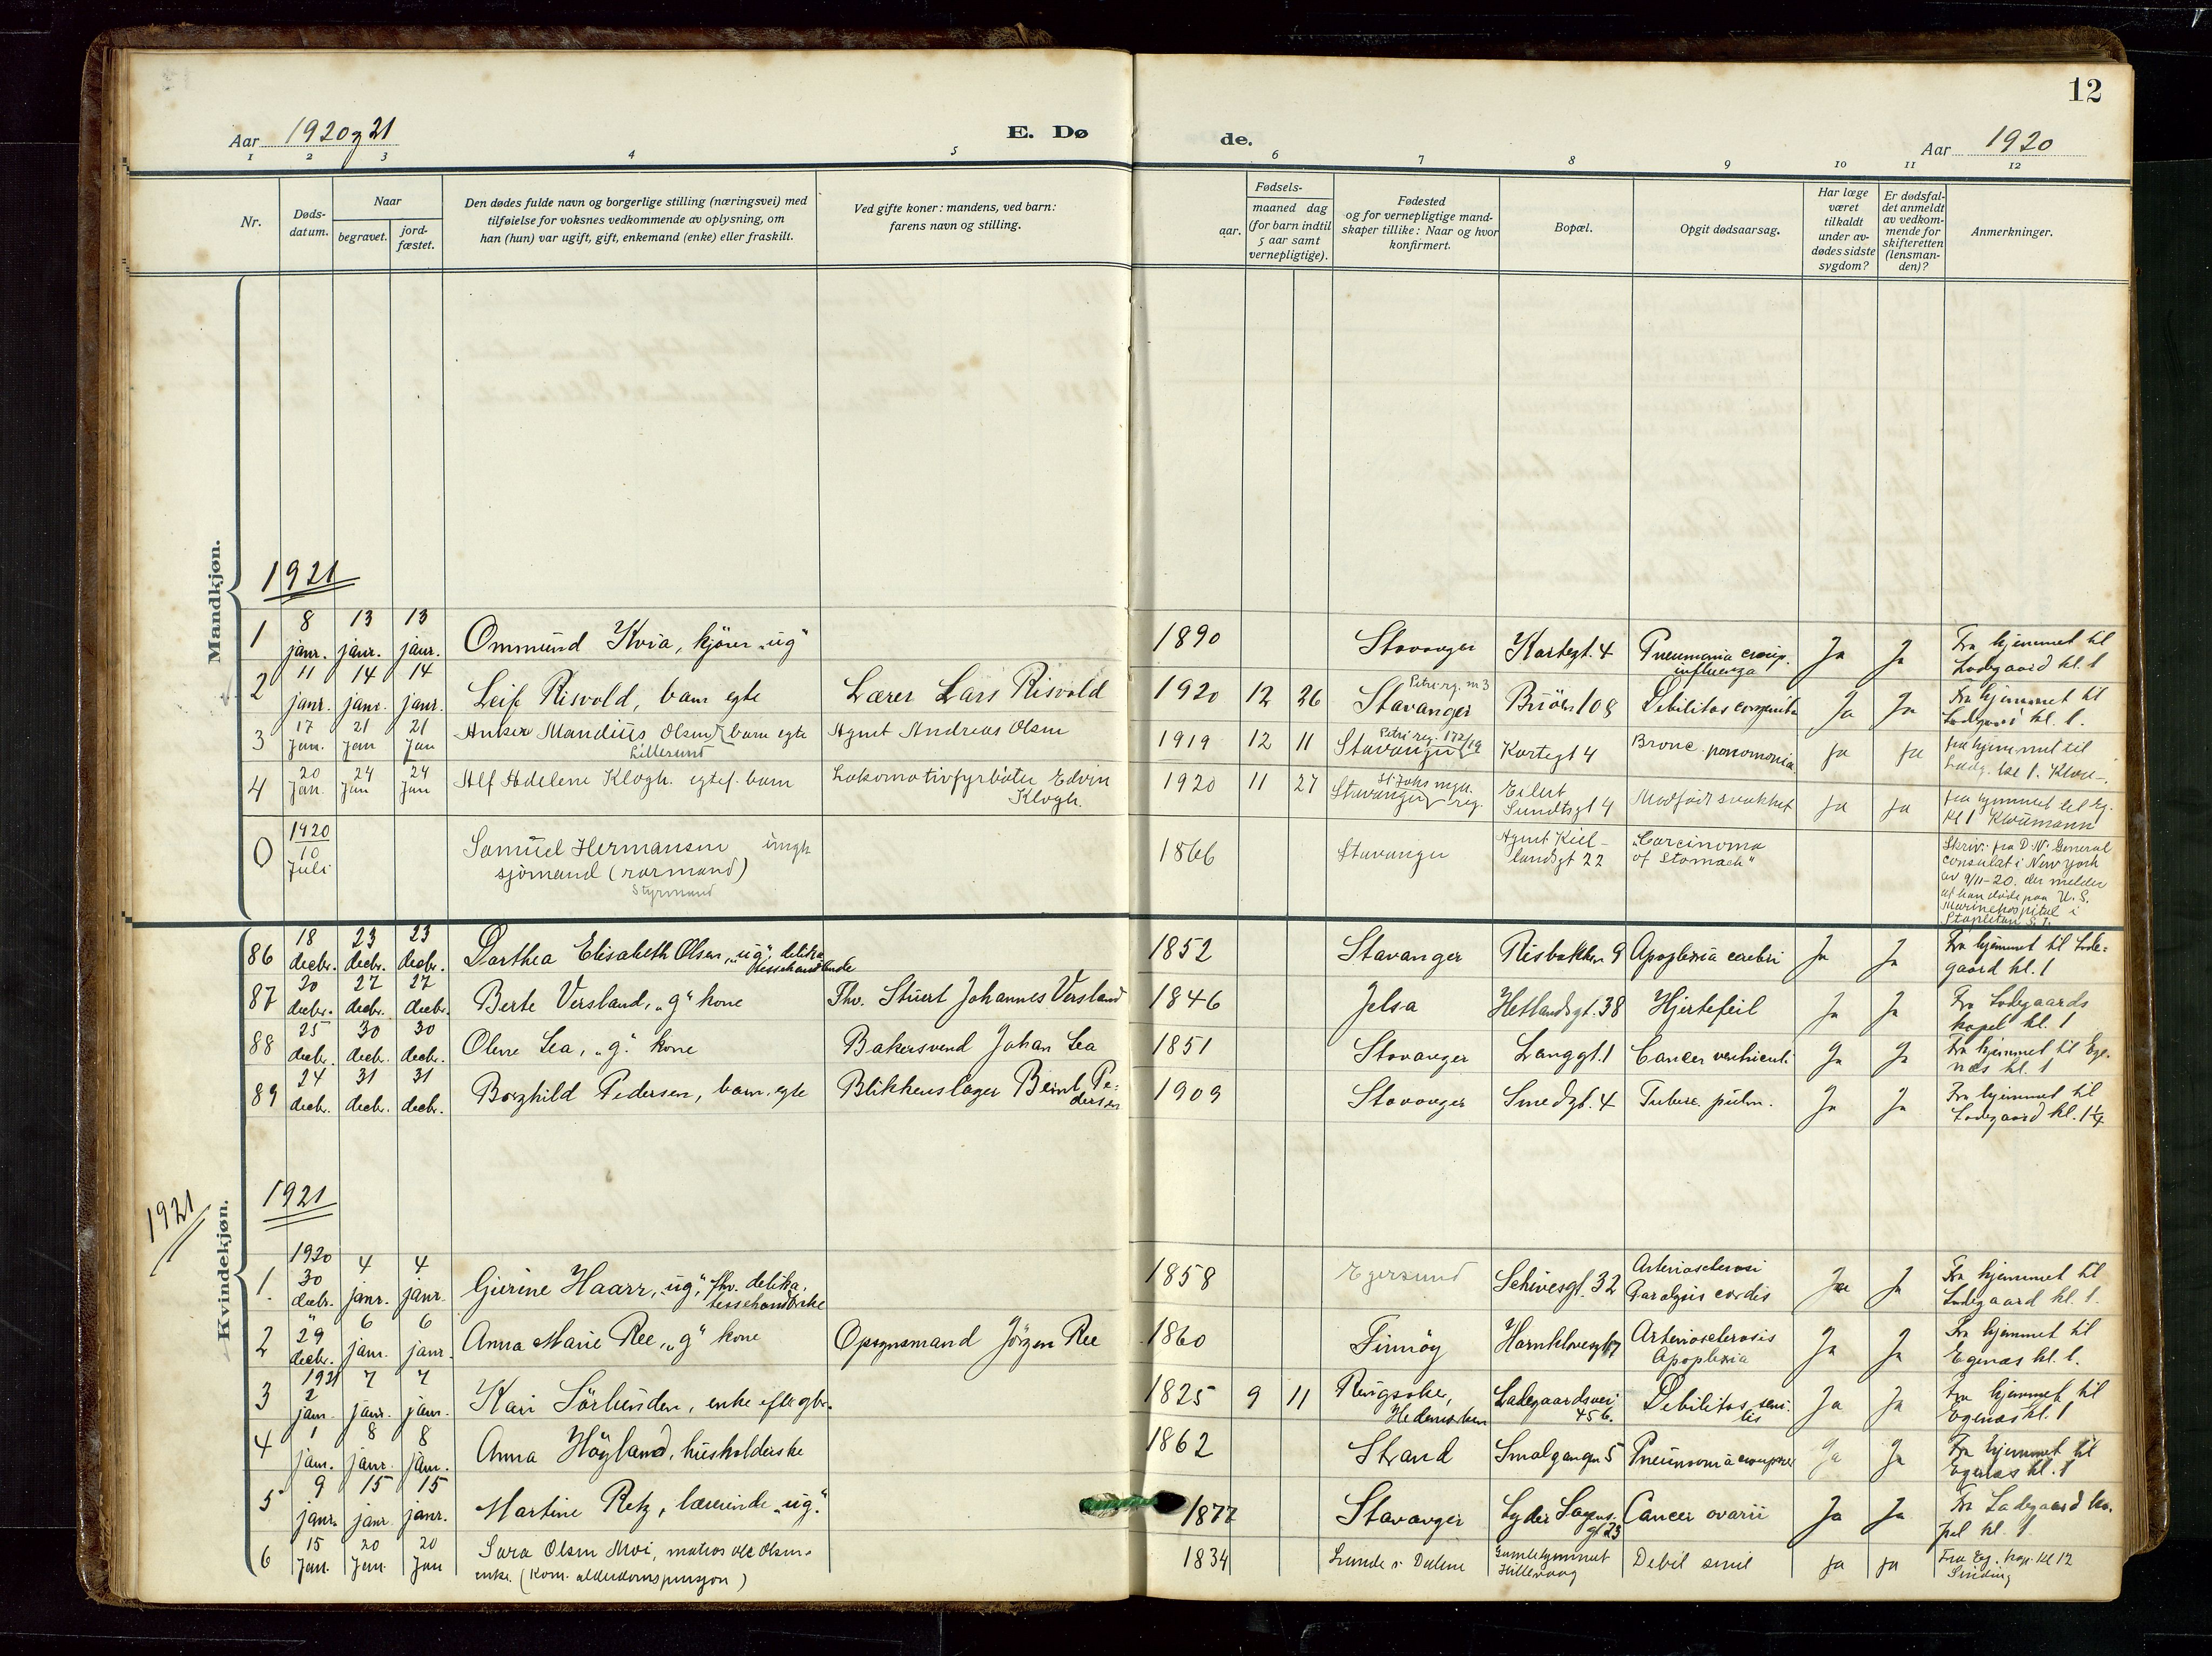 12
Aar 1920 og 21
E. Dø
de.
Aar 1920
1 2 3 4 5 6 7 8 9 10 11 12
Nr.
Døds-
datum.
Naar
begravet.
jord-
fæstet.
Den dødes fulde navn og borgerlige stilling (næringsvei) med
tilføielse for voksnes vedkommende av oplysning, om
han (hun) var ugift, gift, enkemand (enke) eller fraskilt.
Ved gifte koner: mandens, ved barn:
farens navn og stilling.
aar.
Fødsels-
maaned dag
(for barn indtil
5 aar samt
vernepligtige).
Fødested
og for vernepligtige mand-
skaper tillike: Naar og hvor
konfirmert.
Bopæl.
Opgit dødsaarsag.
Har læge
været
tilkaldt
under av-
dødes sidste
sygdom?
Er dødsfal-
det anmeldt
av vedkom-
mende for
skifteretten
(lensman-
den)?
Anmerkninger.
Mandkjøn.
1921
1 8 janr. 13 janr. 13 janr. Ommund Kvia, kjører "ug" 1890 Stavanger Kortegt. 4 Pneumonia croup. influenza Ja Ja Fra hjemmet til
Ladegaard kl. 1
2 11 janr. 14 janr. 14 janr. Leif Risvold, barn egte Lærer Lars Risvold 1920 12 26 Petri rg. nr 3 Stavanger 108 Debilitas congenita Ja Ja Fra hjemmet til
Ladegaard kl. 1.
3 17 Jan. 21 Jan 21 Jan Mandius Olsen barn egte
Lillesund
Agent Andreas Olsen 1919 12 11 Petri reg. 172/19 Stavanger Kortegt 4 Bronc. Ja Ja fra hjemmet til
Ladg. kl 1.
4 20 Jan. 24 Jan 24 Jan Alf Adelene Klogh. egtef. barn Lokomotivfyrbøter Edvin
Klogh. 1920 11 27 St Johs Stavanger reg. Eilert
Sundtsgt 4 Medfødt svakhet Ja Ja fra hjemmet til Eg.
kl 1
0 1920
10
Juli Samuel Hermansen ungk
sjømand (rormand)
Styrmand 1866 Stavanger Agent Kiel-
landsgt 22 "Carcinoma
of Stomach" Skriv. fra D. N. General
consulat i New York
av 9/11-20. der melder
at han døde paa U.S.
Marinehospital i
Stapleton S.I.
Kvindekjøn.
86 18 decbr. 23 decbr. 23 decbr. Dorthea Elisabeth Olsen, "ug", delika
tessehandlende 1852 Stavanger Risbakken 9 Apoplexia cerebri Ja Ja Fra hjemmet til Lade-
gaard kl. 1
87 20 decbr. 27 decbr. 27 decbr. Berte Versland, "g" kone Fhv. Stuert Johannes Versland 1846 Jelsa Hetlandsgt. 38 Hjertefeil Ja Ja Fra Ladegaards
kapel kl. 1
88 25 decbr. 30 decbr. 30 decbr. Olene Lea, "g." kone Bakersvend Johan Lea 1851 Stavanger Langgt. 1 Cancer ventriculi Ja Ja Fra hjemmet til Ege-
næs kl. 1
89 24 decbr. 31 decbr. 31 decbr. Borghild Pedersen, barn, egte Blikkenslager Bernt Pe-
dersen 1909 Stavanger Smedgt. 4 Tuberc. pulm. Ja Ja Fra hjemmet til
Ladegaard kl. 1 1/4
1921
1921
1. 1920
30 decbr. 4 janr. 4 janr. Gurine Haarr, "ug", fhv. delika-
tessehandlerske 1858 Egersund Schivesgt. 32 Arteriosclerosi
Paralysis cordis Ja Ja Fra hjemmet til
Ladegaard kl. 1.
2 " 29 decbr. 6 janr. 6 janr. Anna Marie Ree, "g" kone Opsynsmand Jörgen Ree 1860 Finnöy Arteriosclerosis
Apoplexia Ja Ja Fra hjemmet til
Egenæs kl. 1.
3 1921
2 jan. 7 janr. 7 janr. Kari Sörlunden, enke efter gbr. 1825 9 11 Ringsaker,
Hedemarken Ladegaardsvei
45 b. Debilitas seni-
lis Ja Ja Fra hjemmet til
Egenæs kl. 1
4 1 janr. 8 janr. 8 janr. Anna Höyland, husholderske 1862 Strand Smalgangen 5 Pneumonia Ja Ja Fra hjemmet til
Egenæs kl. 1
5 9 janr. 15 janr. 15 janr. Martine Retz, lærerinde "ug." 1877 Stavanger Lyder Sagens-
gt 23 Cancer ovarii Ja Ja Fra Ladegaard ka-
pel kl. 1.
6 15 Jan. 20 Jan. 20 Jan Sara Olsen Moi, matros Ole Olsens
enke. (Kom. alderdomspensjon) 1834 Lunde i Dalene Gamlehjemmet
Hillevaag Debil senil Ja Ja Fra Eg. kap. kl 12
Sinding